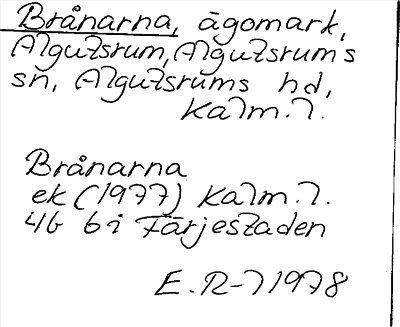 Brånarna, ägomark,
Algutsrum, Algutsrums
sn, Algutsrums hd,
Kalm. l.
Brånarna
ek (1977) Kalm. l.
4G 6i Färjestaden
E. R-l 1978